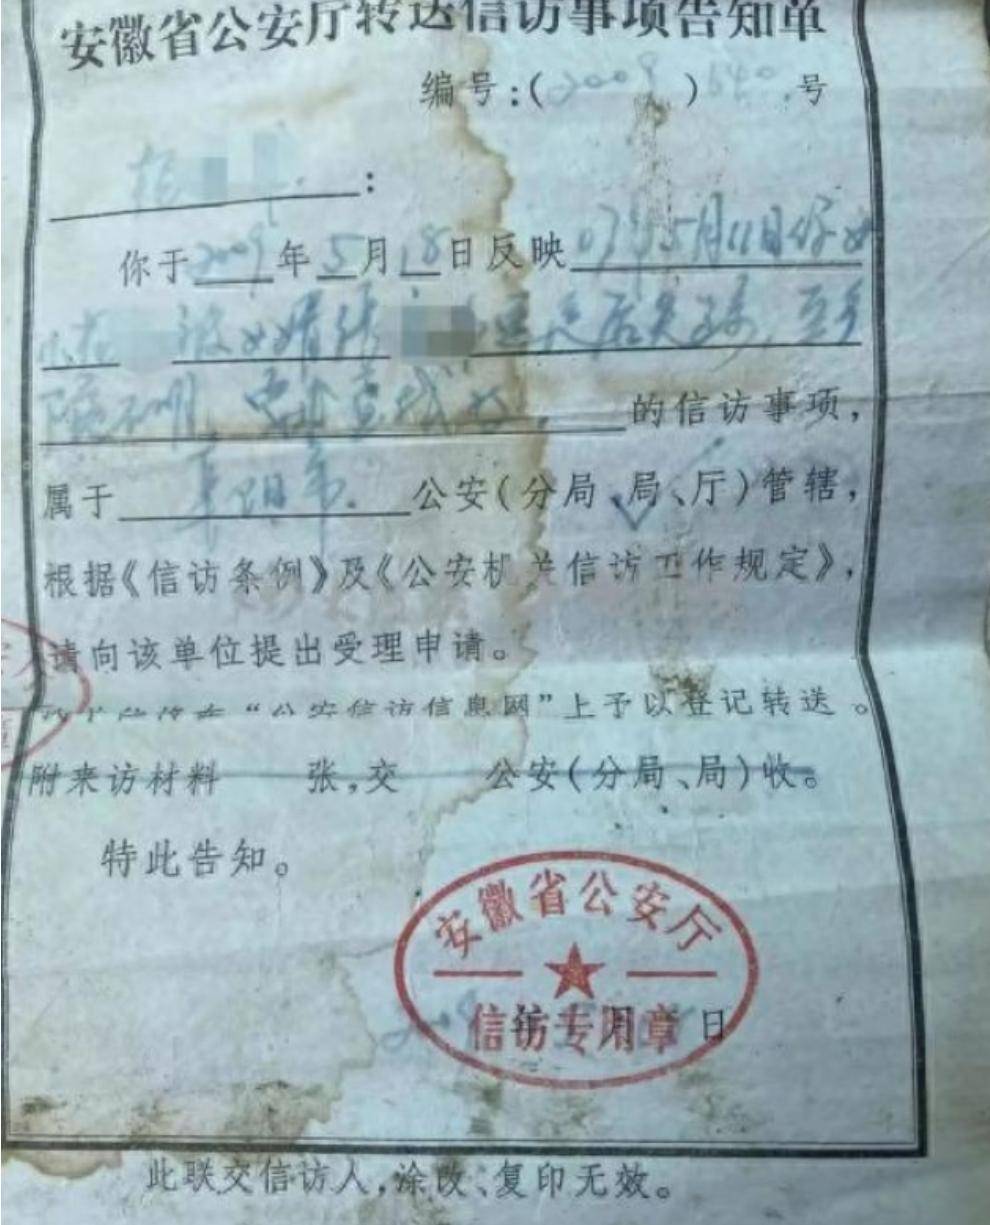 安徽省公安厅转送信访事项告知单
编号:(2009)640号
:
你于2009年5月18日反映07年5月11日你女
被女婿张 接走后失踪,至今
下落不明,要求查找
的信访事项,
属于阜阳市公安(分局、局、厅)管辖,
根据《信访条例》及《公安机关信访工作规定》,
请向该单位提出受理申请。
“公安信访信息网”上予以登记转送。
附来访材料 张,交 公安(分局、局)收。
特此告知。
安徽省公安厅
信访专用章
2009年5月 日
此联交信访人,涂改、复印无效。